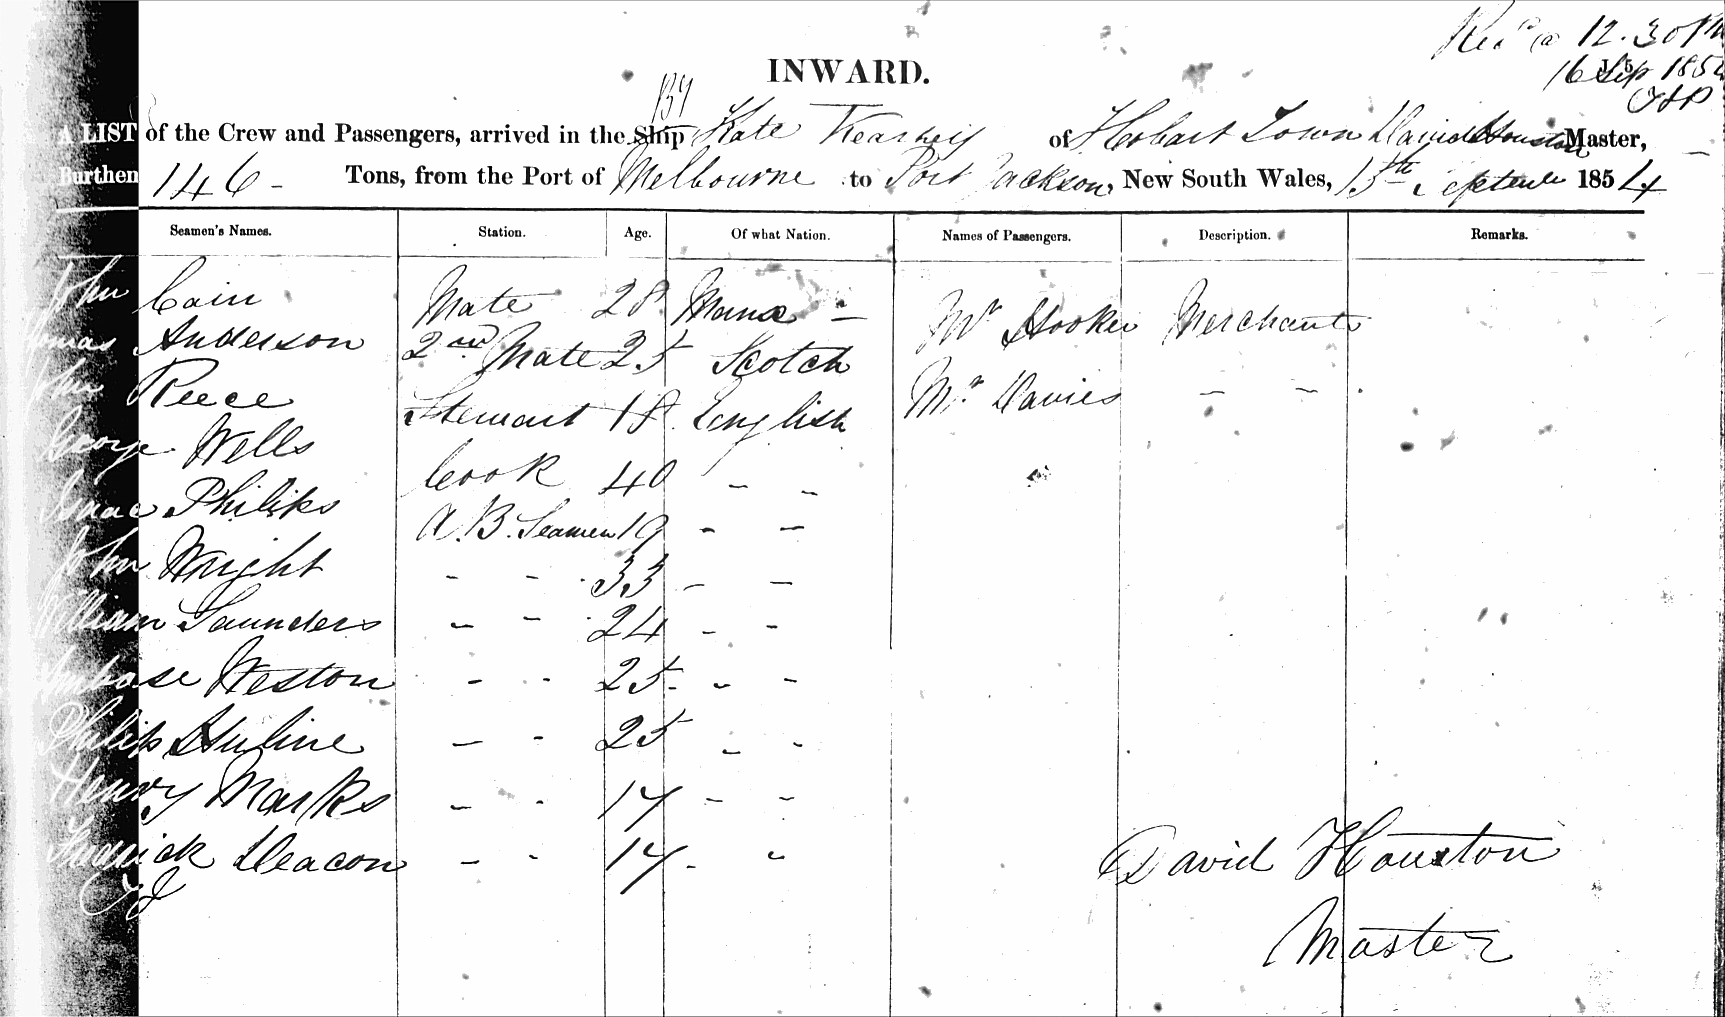 Recd @ 12.30 PM
16 Sep 1854
INWARD.
A LIST of the Crew and Passengers, arrived in the Ship Kate Kearney of Hobart Town David Houston Master,
Burthen 146 - Tons, from the Port of Melbourne to Port Jackson, New South Wales, 15th September 1854
Seamen's Names. Station. Age. Of what Nation. Names of Passengers. Description. Remarks.
John Cain Mate 28 Manx - Mr Hooker Merchant
Thomas Anderson 2nd Mate 25 Scotch
John Reece Stewart 18 English Mr Davies - -
George Wells Cook 40 - -
Isaac Philips A.B. Seamen 19 - -
John Wright - - 33 - -
William Saunders - - 24 - -
Ambose Weston - - 25 - -
Philip Huline - - 25 - -
Henry Marks - - 17 - -
Fredrick Deacon - - 17 - -
David Houston
Master